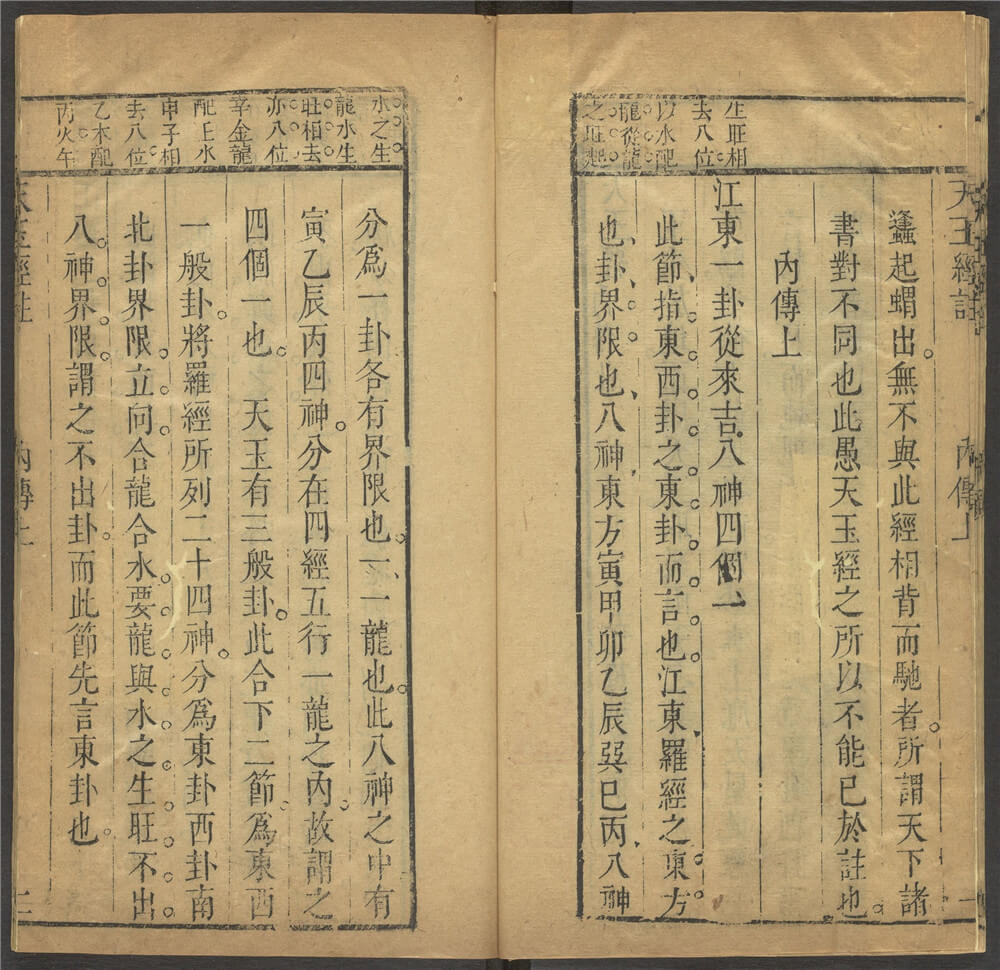 天玉經註
內傳上
一
生旺相
去八位
以水配
龍從龍
之旺起
蠭起蝟出無不與此經相背而馳者所謂天下諸
書對不同也此愚天玉經之所以不能已於註也
內傳上
江東一卦從來吉八神四個一
此節指東西卦之東卦而言也江東羅經之東方
也卦界限也八神東方寅甲卯乙辰巽巳丙八神
水之生
龍水生
旺相去
亦八位
辛金龍
配壬水
申子相
去八位
乙木配
丙火午
分爲一卦各有界限也一一龍也此八神之中有
寅乙辰丙四神分在四經五行一龍之內故謂之
四個一也天玉有三般卦此合下二節爲東西
一般卦將羅經所列二十四神分爲東卦西卦南
北卦界限立向合龍合水要龍與水之生旺不出
八神界限謂之不出卦而此節先言東卦也
天玉經註
內傳上
二